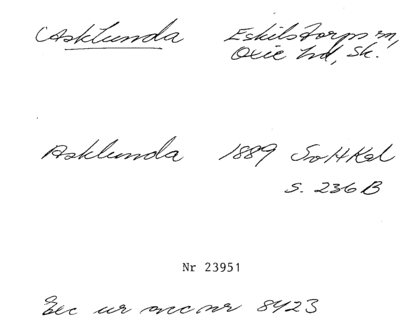 Asklunda Eskilstorps sn,
Oxie hd, Sk.
Asklunda 1889 SvHKal
S. 236 B
Nr 23951
Exc ur acc nr 8423